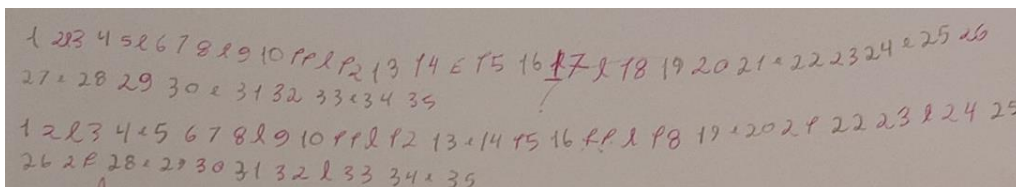 1 2 l 3 4 5 l 6 7 8 l 9 10 11 l 12 13 14 l 15 16 17 l 18 19 20 21 l 22 23 24 l 25 26
27 l 28 29 30 l 31 32 33 l 34 35
1 2 l 3 4 l 5 6 7 8 l 9 10 11 l 12 13 l 14 15 16 17 l 18 19 l 20 21 22 23 l 24 25
26 27 28 l 29 30 31 32 l 33 34 l 35